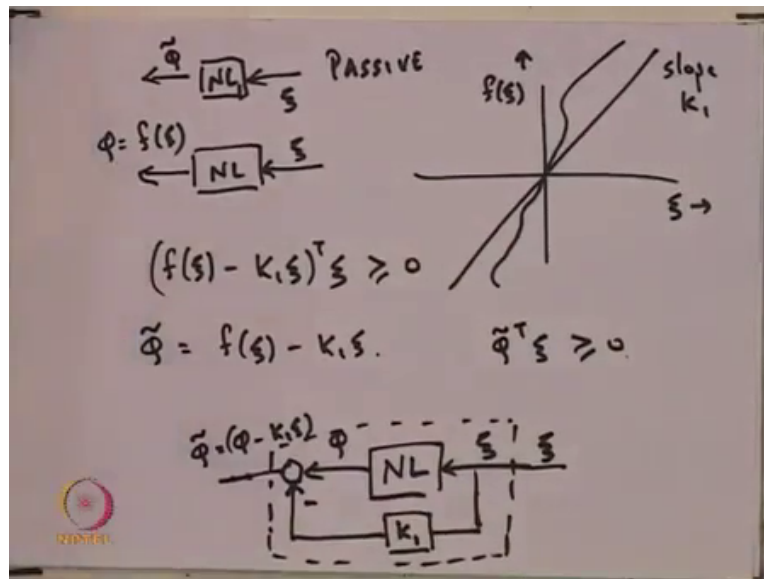 φ̃ NL ξ PASSIVE
φ = f(ξ) NL ξ
f(ξ) ↑
slope K₁
ξ →
(f(ξ) - K₁ξ)ᵀ ξ ⩾ 0
φ̃ = f(ξ) - K₁ξ. φ̃ᵀ ξ ⩾ 0.
φ̃ = (φ - K₁ξ) φ NL ξ ξ
- K₁
NPTEL